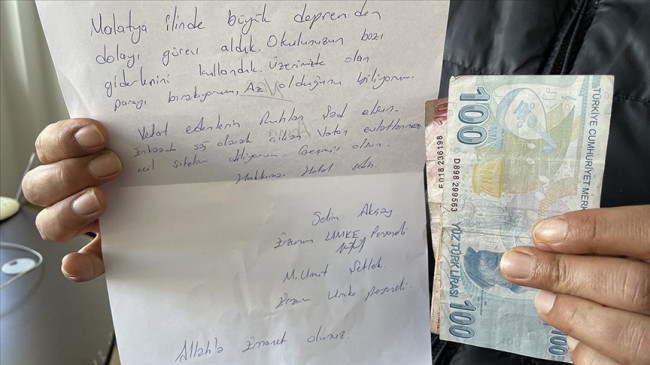 Malatya ilinde büyük depremden
dolayı görev aldık. Okulunuzun bazı
giderlerini kullandık. Üzerimizde olan
parayı bırakıyorum. Az olduğunu biliyorum.
Vefat edenlerin Ruhları Şad olsun.
Enkazda sağ olarak çıkan Vatan evlatlarımıza
acil şifalar diliyorum. Geçmiş olsun.
Hakkınızı Helal edin.
Selim Akçay
Erzurum UMKE Personeli
M. Ümit
Erzurum Umke personeli.
Allah'a Emanet olunuz.
100
TÜRKİYE CUMHURİYET MERK
D898 299563
018 236198
YÜZ TÜRK LİRASI
100
100